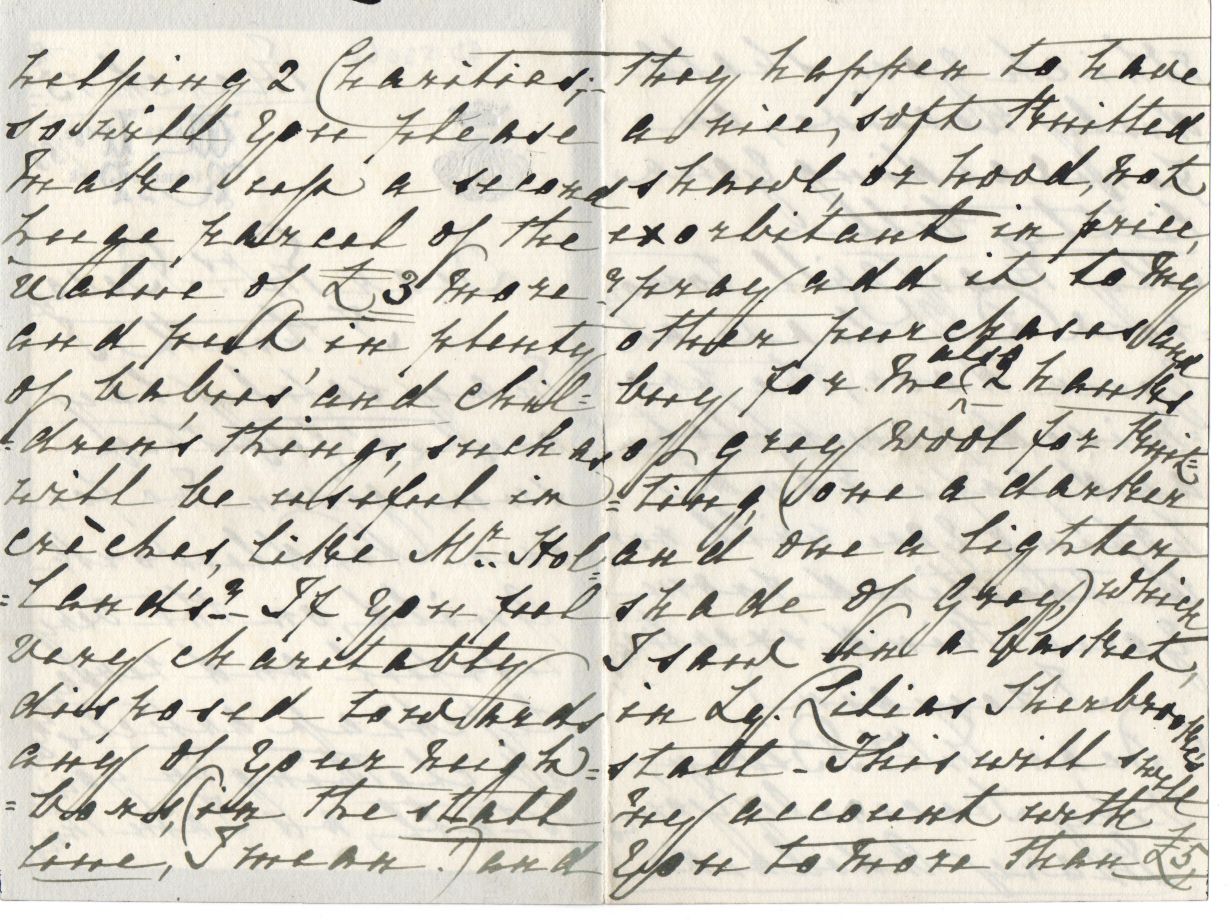 helping 2 Charities;–
so will you please
make up a second
huge parcel of the
value of £3 more
and put in plenty
of babies' and chil=
=dren's things, such as
will be useful in
crèches, like Mr. Hol=
=land's? If you feel
very charitably
disposed towards
any of your neigh=
=bors, (in the stall
line, I mean!) and
they happen to have
a nice, soft knitted
shawl, or hood, not
exorbitant in price,
? pray add it to my
other purchases and
buy for me also 2 hanks
of grey wool for knit=
=ting, (one a darker
and one a lighter
shade of grey,) which
I saw in a basket,
in Ly. Lilias Sherbrookes
stall – This will swell
my account with
you to more than £5,